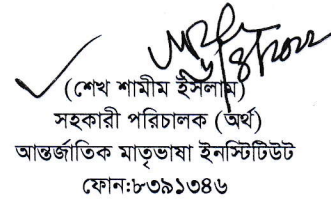 (শেখ শামীম ইসলাম)
সহকারী পরিচালক (অর্থ)
আন্তর্জাতিক মাতৃভাষা ইনস্টিটিউট
ফোন:৮৩৯১৩৪৬